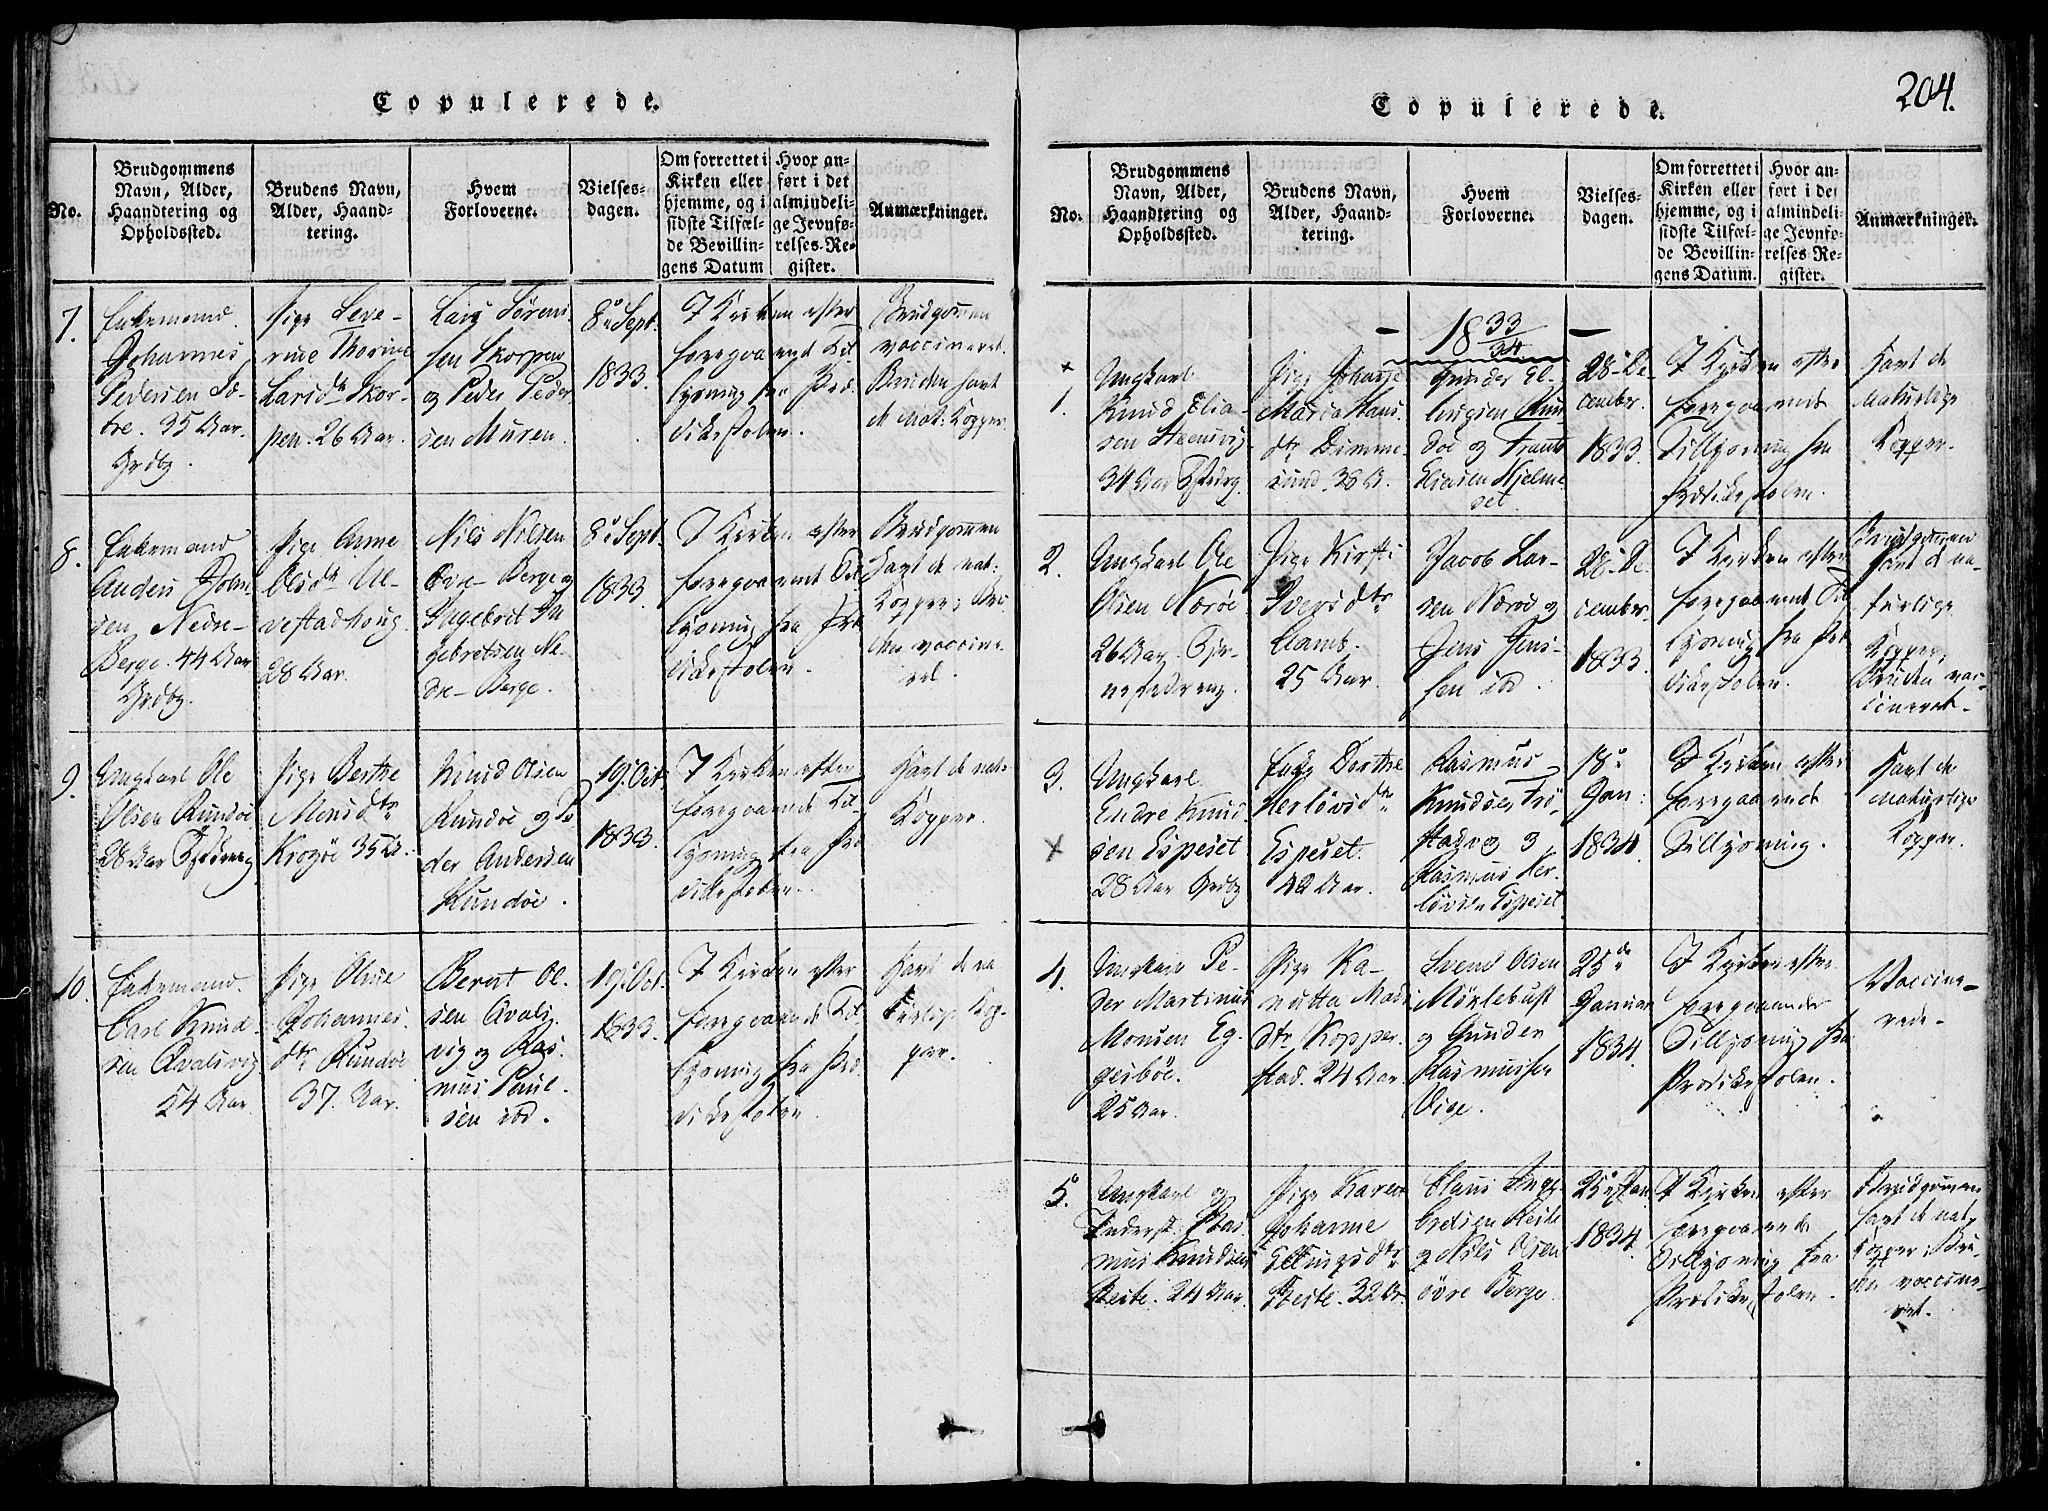 Copulerede.
No.
Brudgommens
Navn, Alder,
Haandtering og
Opholdssted.
Brudens Navn,
Alder, Haand-
tering.
Hvem
Forloverne.
Vielses-
dagen.
Om forrettet i
Kirken eller
hjemme, og i
sidste Tilfæl-
de Bevillin-
gens Datum
Hvor an-
ført i det
almindeli-
ge Jevnfø-
relses-Re-
gister.
Anmærkninger.
7.
Enkemand
Johannes
Pedersen
35 Aar.
Grdbg.
Pige Seve-
rine Thorine
Larsdr Skor-
pen. 26 Aar.
Lars Sørens
sen Skorpen
og Peder Peder
sen Muren.
8de Sept.
1833.
I Kirken efter
foregaaend Til
lysning fra Præ
dikestolen.
Brudgommen
vaccineret.
Bruden havt
de nat: Kopper.
8.
Enkemand
Anders Johan
sen Nedre-
Berge. 44 Aar
Grdbg.
Pige Anne
Olsdr Ul-
vestadhoug.
28 Aar.
Nils Nilsen
Øvre-Berge og
Ingebret In
gebretsen Ne-
dre-Berge.
8de Sept.
1833.
I Kirken efter
foregaaend Til
lysning fra Præ
dikestolen.
Brudgommen
havt de nat:
Kopper; Bru
den vaccine
ret.
9.
Ungkarl Ole
Olsen Rundøe
28 Aar
Pige Berthe
Monsdtr
Krogøe 35 A.
Knud Olsen
Rundøe og Pe
der Andersen
Rundøe.
19de Oct.
1833.
I Kirken efter
foregaaende Til
lysning fra Præ
dikestolen.
Havt de nat:
Kopper.
10.
Enkemand
Carl Knud-
sen Avalsvig
54 Aar.
Pige Oline
Johannes
dtr Rundøe
37. Aar.
Bernt Ol
sen Avals
vig og Ras
mus Paul-
sen ibd.
19de Oct.
1833.
I Kirken efter
foregaaende Til
lysning fra Præ
dikestolen.
Havt de na
turlige Kop-
per.
204.
Copulerede.
No.
Brudgommens
Navn, Alder,
Haandtering og
Opholdssted.
Brudens Navn,
Alder, Haand-
tering.
Hvem
Forloverne.
Vielses-
dagen.
Om forrettet i
Kirken eller
hjemme, og i
sidste Tilfæl-
de Bevillin-
gens Datum.
Hvor an-
ført i det
almindeli-
ge Jevnfø-
relses-Re-
gister.
Anmærkninger.
— 18 33/34 —
+
1.
Ungkarl
Knud Elia-
sen
34 Aar
Pige Johanne
Maria Hans
dtr Dimme-
sund. 36 A.
Gunder El-
lingsen Run
døe og
Eliasen Hjelme
set.
28de De-
cember.
1833.
I Kirken efter
foregaaende
Tillysning fra
Prædikestolen.
Havt de
naturlige
Kopper.
2.
Ungkarl Ole
Olsen Nærøe
26 Aar. Tje-
nestedreng.
Pige Kirsti
Iversdtr
25 Aar.
Jacob Lar-
sen Nærøe og
Jens Jens-
sen ibd.
28de De
cember
1833.
I Kirken efter
foregaaende Til
lysning fra Præ
dikestolen.
Brudgommen
havt de na-
turlige
Kopper;
Bruden vac-
cineret.
3.
x
Ungkarl
Endre Knud
sen Espeset
28 Aar Grdbg
Enke Dorthe
Herløvsdtr
Espeset.
42 Aar.
Rasmus
Knudsen
og
Rasmus Her-
løvsen Espeset.
18de
Jan:
1834.
I Kirken efter
foregaaende
Tillysning.
Havt de
naturlige
Kopper.
4.
Ungkarl Pe-
der Martinus
Monsen Eg-
gesbøe.
25 Aar.
Pige Ka-
nutta Mads
dtr Kopper-
stad. 24 Aar.
Svend Olsen
Mörlebust
og Gunder
Rasmussen
Vige.
25de
Januar
1834.
I Kirken efter
foregaaende
Tillysning fra
Prædikestolen.
Vaccine-
rede.
5.
Ungkarl og
Inderst Ras
mus Knudsen
Reite. 24 Aar.
Pige Karen
Johanne
Ellingsdtr
Reite. 32 A.
Claus Inge
bretsen Reite
og Nils Olsen
øvre Berge.
25de Jan
1834.
I Kirken efter
foregaaende
Tillysning fra
Prædikestolen.
Brudgommen
havt de nat.
Kopper; Bru
den vaccine-
ret.